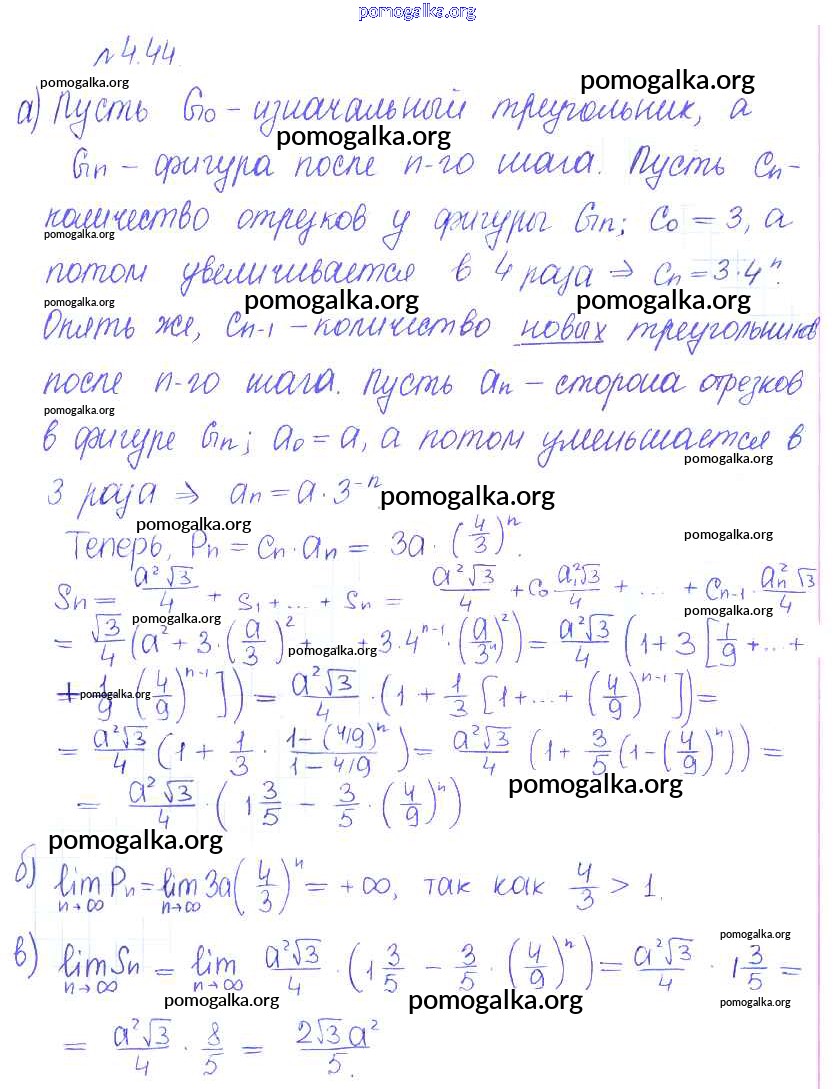 pomogalka.org
№4.44.
pomogalka.org pomogalka.org
а) Пусть G₀ – изначальный треугольник, а
pomogalka.org
Gn – фигура после n-го шага. Пусть Cn –
количество отрезков у фигуры Gn; C₀ = 3, а
pomogalka.org
потом увеличивается в 4 раза ⇒ Cn = 3·4ⁿ.
pomogalka.org pomogalka.org pomogalka.org
Опять же, Cn-1 – количество новых треугольников
после n-го шага. Пусть an – сторона отрезков
pomogalka.org
в фигуре Gn; a₀ = a, а потом уменьшается в
pomogalka.org
3 раза ⇒ an = a·3⁻ⁿ.
pomogalka.org
pomogalka.org pomogalka.org
Теперь, Pn = Cn·an = 3a·(4/3)ⁿ.
Sn = a²√3/4 + S₁ + ... + Sn = a²√3/4 + C₀ a₁²√3/4 + ... + Cn-1 · an²√3/4
pomogalka.org pomogalka.org
= √3/4 (a² + 3·(a/3)² + ... + 3·4ⁿ⁻¹·(a/3ⁿ)²) = a²√3/4 (1 + 3[1/9 + ... +
pomogalka.org
+ 1/9 · (4/9)ⁿ⁻¹]) = a²√3/4 · (1 + 1/3 [1 + ... + (4/9)ⁿ⁻¹]) =
pomogalka.org
= a²√3/4 (1 + 1/3 · 1-(4/9)ⁿ/1-4/9) = a²√3/4 (1 + 3/5 (1-(4/9)ⁿ)) =
pomogalka.org
= a²√3/4 · (1 3/5 – 3/5 · (4/9)ⁿ)
pomogalka.org
б) lim n→∞ Pn = lim n→∞ 3a(4/3)ⁿ = +∞, так как 4/3 > 1.
pomogalka.org
в) lim n→∞ Sn = lim n→∞ a²√3/4 · (1 3/5 – 3/5 · (4/9)ⁿ) = a²√3/4 · 1 3/5 =
pomogalka.org pomogalka.org pomogalka.org
= a²√3/4 · 8/5 = 2√3a²/5.